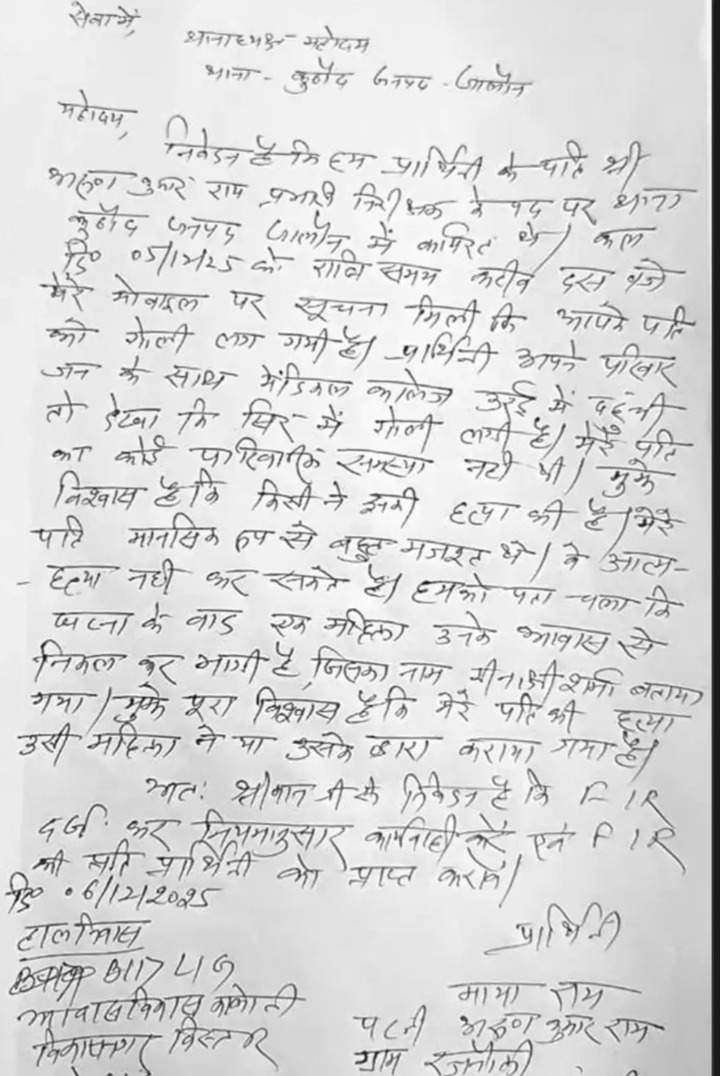 सेवा में,
थानाध्यक्ष महोदय
थाना - कुठौंद जनपद - जालौन
महोदय,
निवेदन है कि हम प्रार्थिनी के पति श्री
अरुण कुमार राय प्रभारी निरीक्षक के पद पर थाना
कुठौंद जनपद जालौन में कार्यरत थे। कल
दि० 05/12/25 को रात्रि समय करीब दस बजे
मेरे मोबाइल पर सूचना मिली कि आपके पति
को गोली लग गयी है। प्रार्थिनी अपने परिवार
जन के साथ मेडिकल कालेज उरई में पहुंची
तो देखा कि सिर में गोली लगी है। मेरे पति
का कोई पारिवारिक समस्या नही थी। मुझे
विश्वास है कि किसी ने इनकी हत्या की है। मेरे
पति मानसिक रुप से बहुत मजबूत थे। वे आत्म-
हत्या नही कर सकते है। हमको पता चला कि
घटना के बाद एक महिला उनके आवास से
निकल कर भागी है, जिसका नाम मीनाक्षी शर्मा बताया
गया। मुझे पूरा विश्वास है कि मेरे पति की हत्या
उसी महिला ने या उसके द्वारा कराया गया है।
अतः श्रीमान जी से निवेदन है कि FIR
दर्ज कर नियमानुसार कार्यवाही करें एवं FIR
की प्रति प्रार्थिनी को प्राप्त करावें।
दि० 06/12/2025
हालनिवास
B117 LIG
आवास विकास कालोनी
विकासनगर विस्तार
प्रार्थिनी
माया राय
पत्नी अरुण कुमार राय
ग्राम